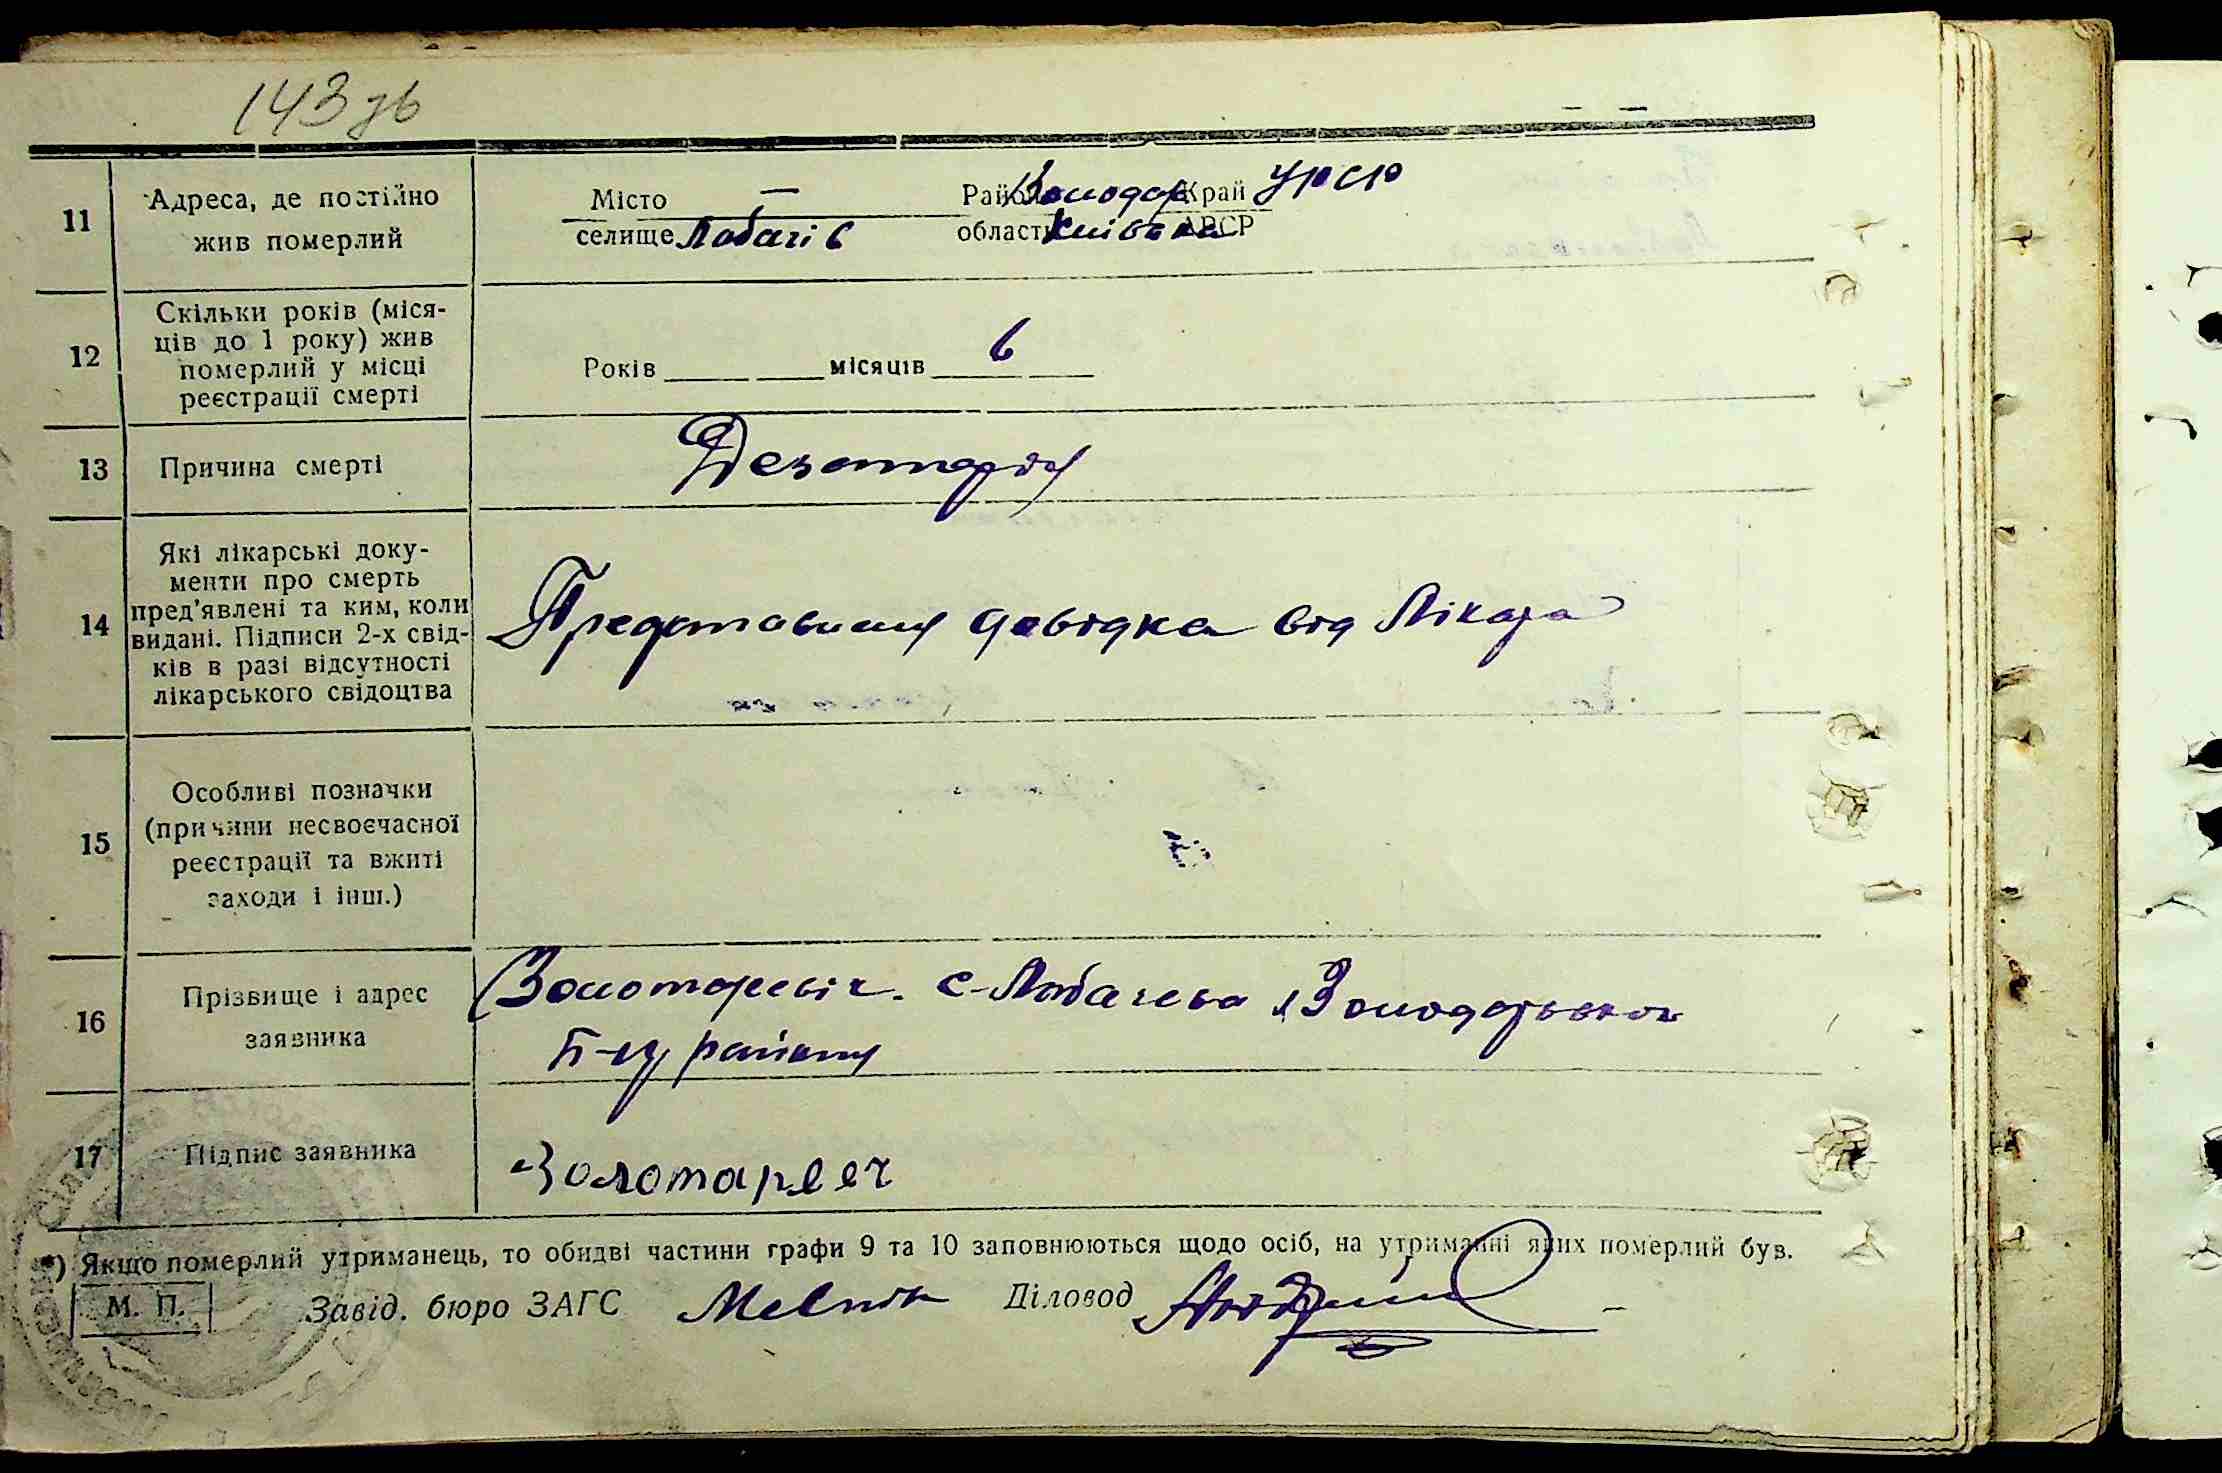 143 зв
11 Адреса, де постійно жив померлий
Місто — Район Володар Край УРСР
селище Лобачів область Київська АРСР
12 Скільки років (міся-
ців до 1 року) жив
померлий у місці
реєстрації смерті
Років ____ місяців 6
13 Причина смерті
Дезентерія
14 Які лікарські доку-
менти про смерть
пред'явлені та ким, коли
видані. Підписи 2-х свід-
ків в разі відсутності
лікарського свідоцтва
довідка від Лікара
15 Особливі позначки
(причини несвоєчасної
реєстрації та вжиті
заходи і інш.)
16 Прізвище і адрес
заявника
Золотаревіч. с-Лобачева
району
17 Підпис заявника
Золотарвеч
*) Якщо померлий утриманець, то обидві частини графи 9 та 10 заповнюються щодо осіб, на утриманні яких померлий був.
М. П. Завід. бюро ЗАГС Мельнік Діловод